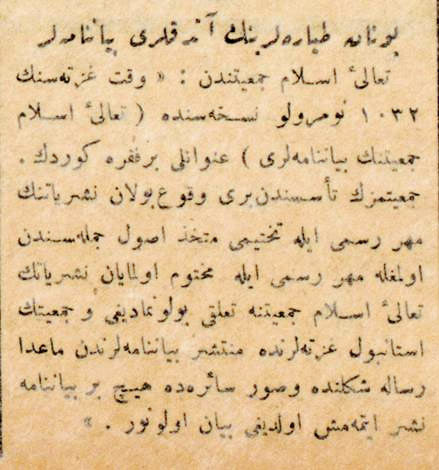 یونان طیاره‌لرینك آتدقلری بیاننامه‌لر
تعالیٔ اسلام جمعیتندن : « وقت غزته‌سنك
١٠٣٢ نومرولو نسخه‌سنده ( تعالیٔ اسلام
جمعیتنك بیاننامه‌لری ) عنوانلی برفقره كوردك .
جمعیتمزك تأسسندن‌بری وقوع‌بولان نشریاتنك
مهر رسمی ایله تختیمی متخذ اصول جمله‌سندن
اولمغله مهر رسمی ایله مختوم اولمایان نشریاتك
تعالیٔ اسلام جمعیتنه تعلقی بولونمادیغی و جمعیتك
استانبول غزته‌لرنده منتشر بیاننامه‌لرندن ماعدا
رساله شكلنده وصور سائره‌ده هیچ بر بیاننامه
نشر ایتمه‌مش اولدیغی بیان اولونور . »